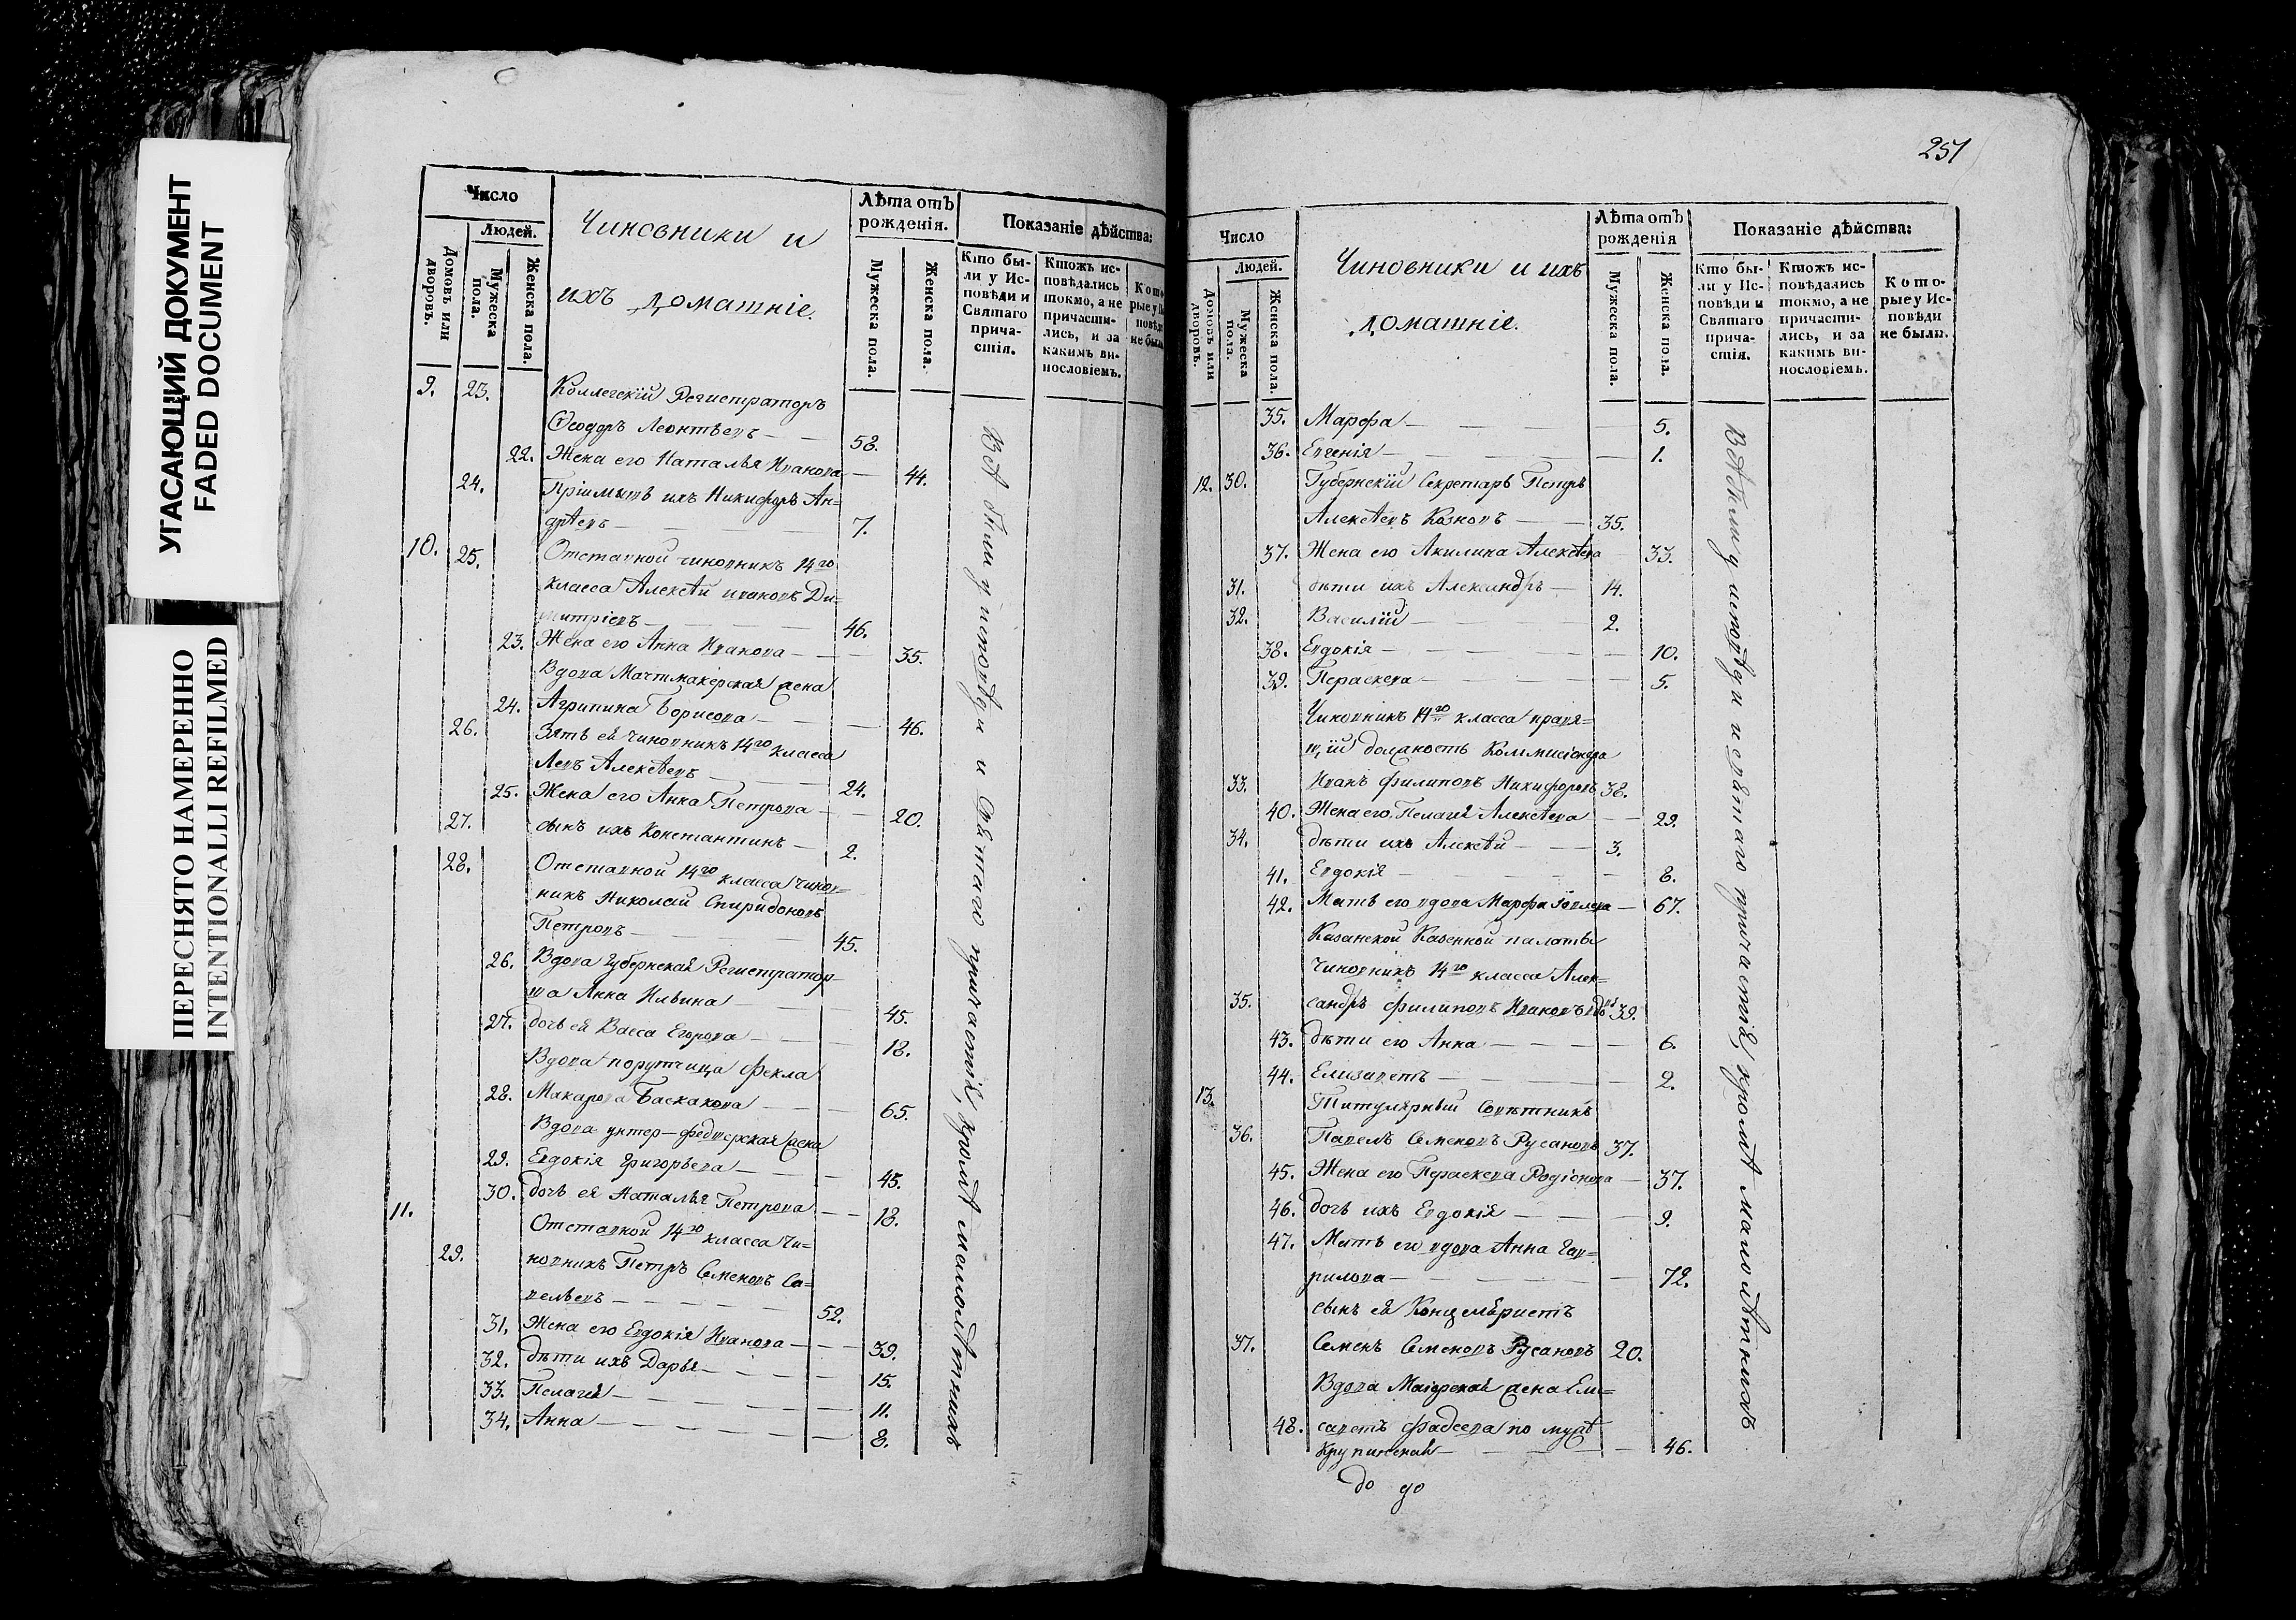 УГАСАЮЩИЙ ДОКУМЕНТ
FADED DOCUMENT
ПЕРЕСНЯТО НАМЕРЕННО
INTENTIONALLI REFILMED
Число
Людей.
Домовъ или дворовъ.
Мужеска пола.
Женска пола.
Чиновники и
ихъ домашніе.
Лѣта отъ рожденія.
Мужеска пола.
Женска пола.
Показаніе дѣйства:
Кто бы-
ли у Ис-
повѣди и
Святаго
прича-
стія.
Ктожъ ис-
повѣдались
токмо, а не
причасти-
лись, и за
какимъ ви-
нословіемъ.
9. 23. Коллегскій Регистраторъ
Ѳеодоръ Леонтьевъ — — 58.
22. Жена его Наталья Иванова — 44.
24. Пріимышъ ихъ Никифоръ Ан=
дрѣевъ — — 7.
10. 25. Отставной чиновникъ 14го
класса Алексѣй Ивановъ Ди=
митріевъ — — 46.
23. Жена его Анна Иванова — — 35.
Вдова Мачтмакерская жена
24. Агрипина Борисова — — 46.
26. Зять ея чиновникъ 14го класса
Левъ Алексѣевъ — — 24.
25. Жена его Анна Петрова — — 20.
27. сынъ ихъ Константинъ — 2.
28. Отставной 14го класса чинов=
никъ Николай Спиридоновъ
Петровъ — — 45.
26. Вдова Губернская Регистратор=
ша Анна Ильина — — 45.
27. дочь ея Васса Егорова — — 18.
Вдова порутчица Фекла
28. Макарова Баскакова — — 65.
Вдова унтер-
жена
29. Евдокія Григорьева — — 45.
30. дочь ея Наталья Петрова — — 18.
11. Отставной 14го класса Чи=
29. новникъ Петръ Семеновъ Са=
вельевъ — — 52.
31. Жена его Евдокія Иванова — — 39.
32. дѣти ихъ Дарья — — 15.
33. Пелагея — — 11.
34. Анна — — 8.
Всѣ были у исповѣди и Святаго причастія, кромѣ малолѣтнихъ
251
Число
Людей.
Домовъ или дворовъ.
Мужеска пола.
Женска пола.
Чиновники и ихъ
домашніе.
Лѣта отъ рожденія
Мужеска пола.
Женска пола.
Показаніе дѣйства:
Кто бы-
ли у Ис-
повѣди и
Святаго
прича-
стія.
Ктожъ ис-
повѣдались
токмо, а не
причасти-
лись, и за
какимъ ви-
нословіемъ.
Кото-
рые у Ис-
повѣди
не были.
35. Марфа — — 5.
36. Евгенія — — 1.
12. 30. Губернскій Секретарь Петръ
Алексѣевъ Козновъ — — 35.
37. Жена его Акилина Алексѣева 33.
31. дѣти ихъ Александръ — 14.
32. Василій — 2.
38. Евдокія — — 10.
39. Параскева — — 5.
Чиновникъ 14го класса правя=
щій должность Коммисіонера
33. Иванъ Филиповъ Никифоровъ 38.
40. Жена его Пелагея Алексѣева — 29.
34. дѣти ихъ Алексѣй — — 3.
41. Евдокія — — 8.
42. Мать его вдова Марфа — 67.
Казанской Казенной палаты
Чиновникъ 14го класса Алек=
35. сандръ Филиповъ Ивановъ 39.
43. дѣти его Анна — — 6.
44. Елизаветъ — — 2.
13. Титулярный Совѣтникъ
36. Павелъ Семеновъ Русановъ 37.
45. Жена его Параскева Родіонова — 37.
46. дочь ихъ Евдокія — — 9.
47. Мать его вдова Анна Гав=
рилова — — 72.
сынъ ея Канцеляристъ
37. Семенъ Семеновъ Русановъ 20.
Вдова Маіорская жена Ели=
48. саветъ Фадеева по мужѣ
Крупинская — — 46.
Всѣ были у исповѣди и святаго причастія, кромѣ малолѣтнихъ